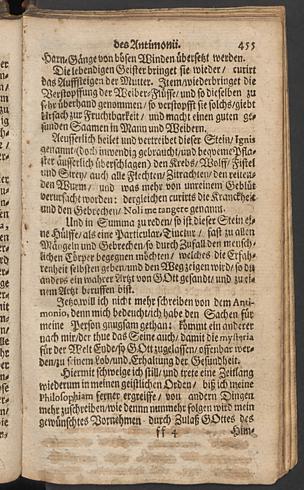 des Antimonii. 455
Harn-Gänge von bösen Winden übersetzt werden.
Die lebendigen Geister bringet sie wieder / curirt
das Auffsteigen der Mutter. Item / wiederbringet die
Verstopffung der Weiber-Flüsse / und so dieselben zu
sehr überhand genommen / so verstopfft sie solchs / giebt
Ursach zur Fruchtbarkeit / und macht einen guten ge-
sunden Saamen in Mann und Weibern.
Aeusserlich heilet und vertreibet dieser Stein / Ignis
genannt (doch inwendig gebraucht / und bequeme Pfla-
ster äusserlich überschlagen) den Krebs / Wolff / Fistel
und / auch alle Flechten / Zitrachten / den reiten-
den Wurm / und was mehr von unreinem Geblüt
verursacht worden: dergleichen curirts die Kranckheit
und den Gebrechen / Noli me tangere genannt.
Und in Summa zu reden / so ist dieser Stein ei-
ne Hülffe / als eine Particular-Tinctur / fast zu allen
Mängeln und Gebrechen / so durch Zufall den mensch-
lichen Cörper begegnen möchten / welches die Erfah-
renheit selbsten geben / und den Weg zeigen wird / so du
anders ein wahrer Artzt von GOtt gesandt / und zu ei-
nem Artzt beruffen bist.
Jetzo will ich nicht mehr schreiben von dem Anti-
monio, denn mich bedeucht / ich habe den Sachen für
meine Person gnugsam gethan: kommt ein anderer
nach mir / der thue das Seine auch / damit die mysteria
für der Welt Ende / so GOtt zugelassen / offenbar wer-
den / zu seinem Lob / und Erhaltung der Gesundheit.
Hiermit schweige ich still / und trete eine Zeitlang
wiederum in meinen geistlichen Orden / biß ich meine
Philosophiam ferner ergreiffe / von andern Dingen
mehr zuschreiben / wie denn nunmehr folgen wird mein
gewünschtes Vornehmen / durch Zulaß GOttes des
ff 4 Him-